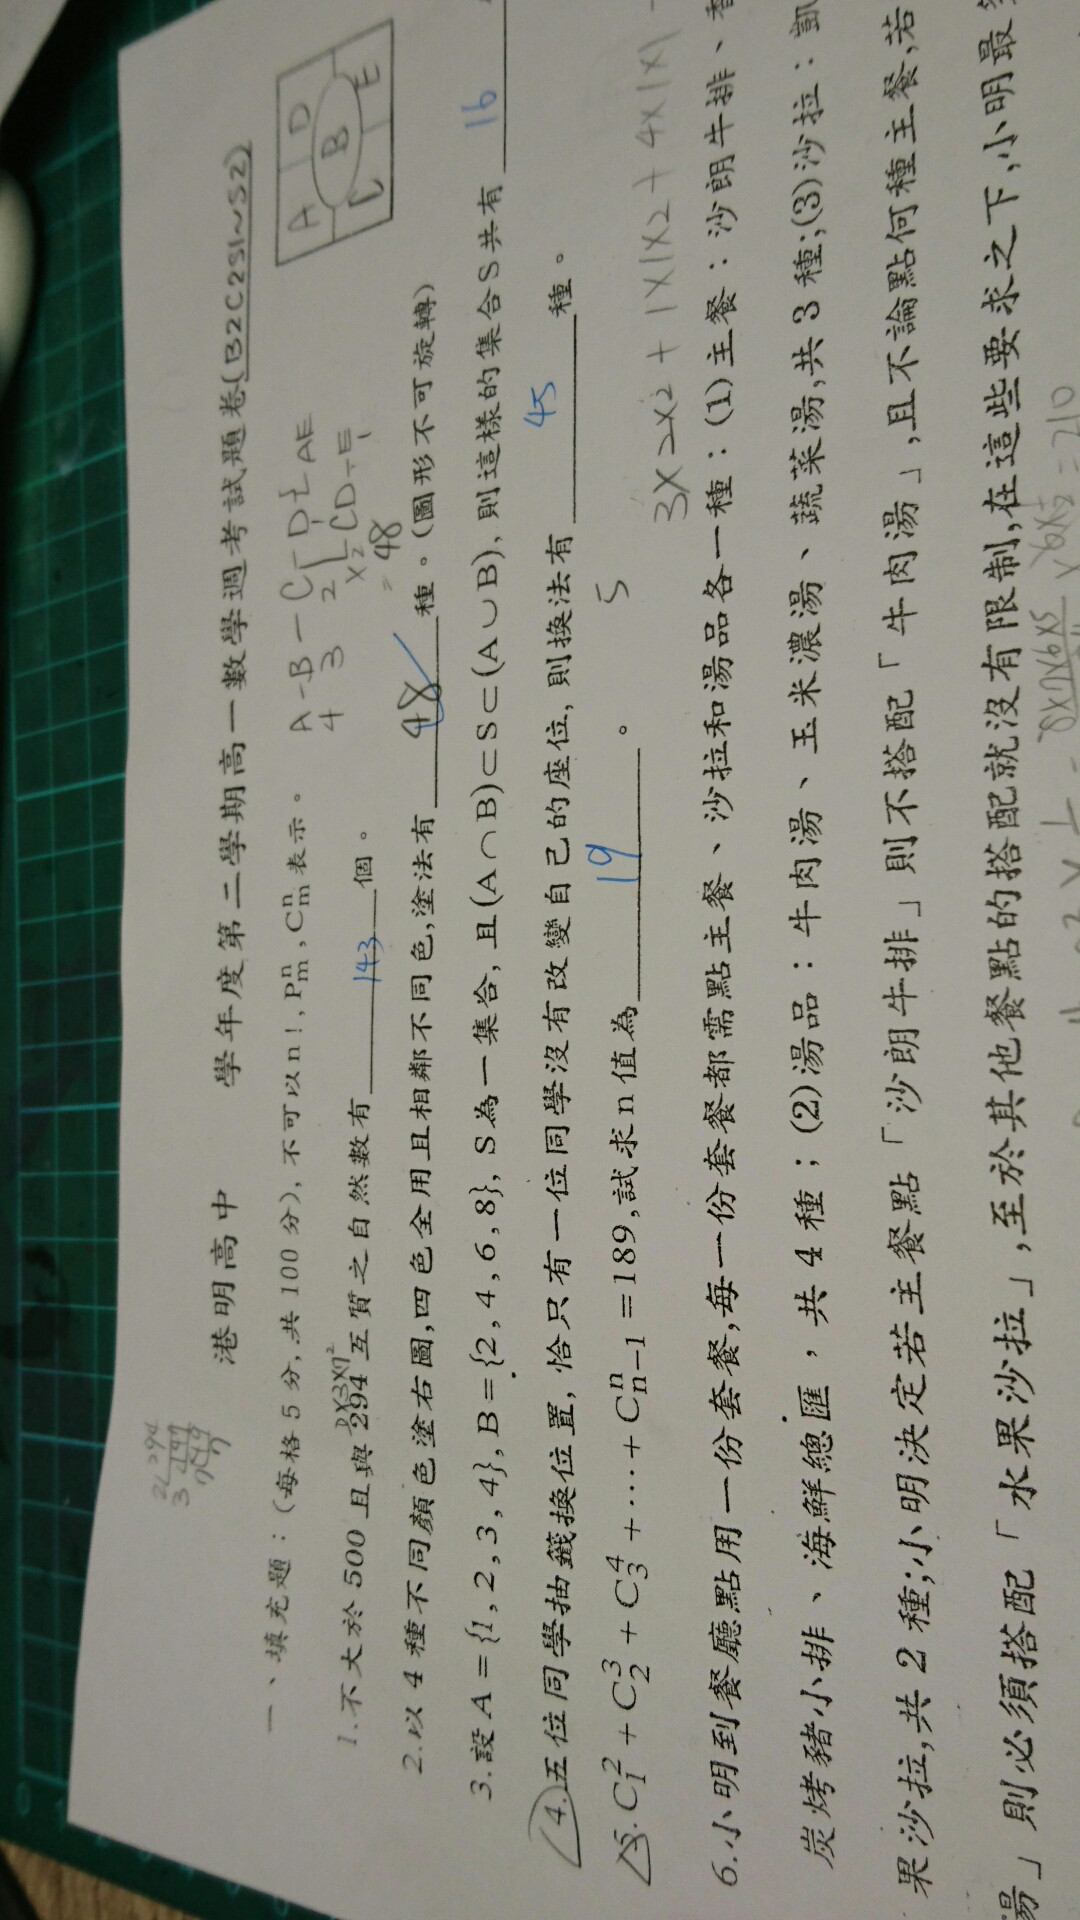 港明高中 學年度第二學期高一數學週考試題卷(B2C2S1~S2)
一、填充題：(每格5分,共100分),不可以n!,Pⁿₘ,Cⁿₘ表示。
1.不大於500且與294互質之自然數有 143 個。
2×3×7²
A-B-C-D
4 3 2
=48
2.以4種不同顏色塗右圖,四色全用且相鄰不同色,塗法有 48 種。(圖形不可旋轉)
A D B C E
3.設A={1,2,3,4},B={2,4,6,8},S為一集合,且(A∩B)⊂S⊂(A∪B),則這樣的集合S共有 16
4.五位同學抽籤換位置,恰只有一位同學沒有改變自己的座位,則換法有 45 種。
5.C²₁+C³₂+C⁴₃+⋯+Cⁿₙ₋₁=189,試求n值為 19 。
5
3×2×2+1×1×2+4×1×1
6.小明到餐廳點用一份套餐,每一份套餐都需點主餐、沙拉和湯品各一種：(1)主餐：沙朗牛排、
炭烤豬小排、海鮮總匯,共4種；(2)湯品：牛肉湯、玉米濃湯、蔬菜湯,共3種;(3)沙拉：
果沙拉,共2種;小明決定若主餐點「沙朗牛排」則不搭配「牛肉湯」,且不論點何種主餐,若
湯」則必須搭配「水果沙拉」,至於其他餐點的搭配就沒有限制,在這些要求之下,小明最
=210